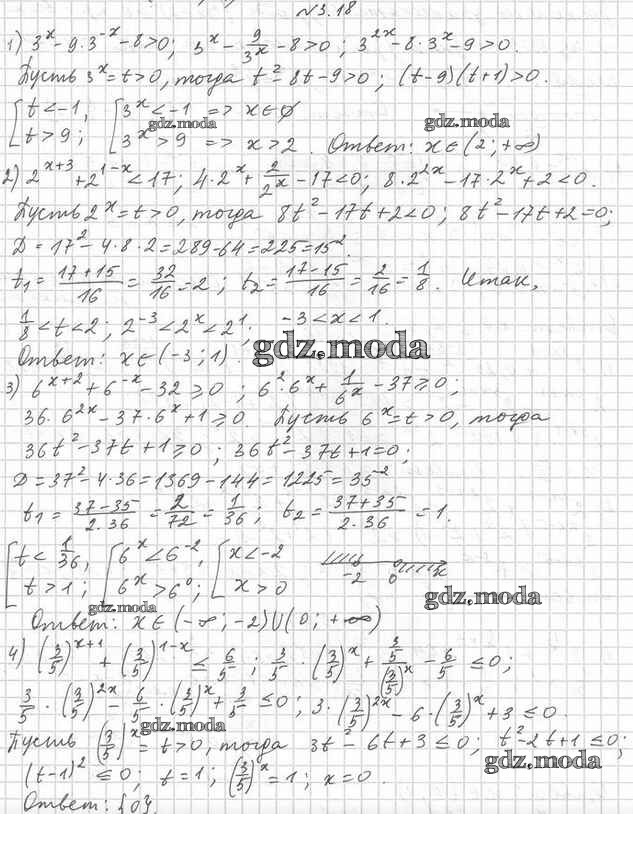 №3.18
1) 3^x - 9·3^{-x} - 8 > 0; 3^x - 9/3^x - 8 > 0; 3^{2x} - 8·3^x - 9 > 0.
Пусть 3^x = t > 0, тогда t² - 8t - 9 > 0; (t-9)(t+1) > 0.
[ t < -1, [ 3^x < -1 => x ∈ ∅
gdz.moda gdz.moda
[ t > 9; [ 3^x > 9 => x > 2. Ответ: x ∈ (2; +∞)
2) 2^{x+3} + 2^{1-x} < 17; 4·2^x + 2/2^x - 17 < 0; 8·2^{2x} - 17·2^x + 2 < 0.
Пусть 2^x = t > 0, тогда 8t² - 17t + 2 < 0; 8t² - 17t + 2 = 0;
D = 17² - 4·8·2 = 289 - 64 = 225 = 15².
t₁ = (17+15)/16 = 32/16 = 2; t₂ = (17-15)/16 = 2/16 = 1/8. Итак,
1/8 < t < 2; 2^{-3} < 2^x < 2^1; -3 < x < 1.
gdz.moda
Ответ: x ∈ (-3; 1).
3) 6^{x+2} + 6^{-x} - 32 ⩾ 0; 6²·6^x + 1/6^x - 37 ⩾ 0;
36·6^{2x} - 37·6^x + 1 ⩾ 0. Пусть 6^x = t > 0, тогда
36t² - 37t + 1 ⩾ 0; 36t² - 37t + 1 = 0;
D = 37² - 4·36 = 1369 - 144 = 1225 = 35²
t₁ = (37-35)/(2·36) = 2/72 = 1/36; t₂ = (37+35)/(2·36) = 1.
[ t < 1/36, [ 6^x < 6^{-2}, [ x < -2
[ t > 1; [ 6^x > 6^0; [ x > 0 -2 0 x
gdz.moda gdz.moda
Ответ: x ∈ (-∞; -2) ∪ (0; +∞)
4) (3/5)^{x+1} + (3/5)^{1-x} ≤ 6/5; 3/5·(3/5)^x + (3/5)/(3/5)^x - 6/5 ≤ 0;
3/5·(3/5)^{2x} - 6/5·(3/5)^x + 3/5 ≤ 0; 3·(3/5)^{2x} - 6·(3/5)^x + 3 ≤ 0
gdz.moda
Пусть (3/5)^x = t > 0, тогда 3t² - 6t + 3 ≤ 0; t² - 2t + 1 ≤ 0;
gdz.moda
(t-1)² ≤ 0; t = 1; (3/5)^x = 1; x = 0.
Ответ: {0}.